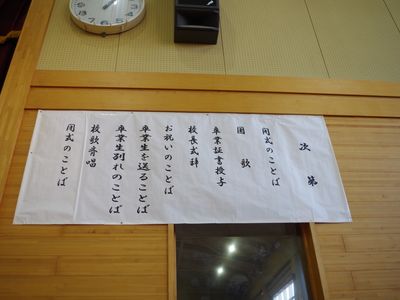 次第
開式のことば
国歌
卒業証書授与
校長式辞
お祝いのことば
卒業生を送ることば
卒業生別れのことば
校歌斉唱
閉式のことば